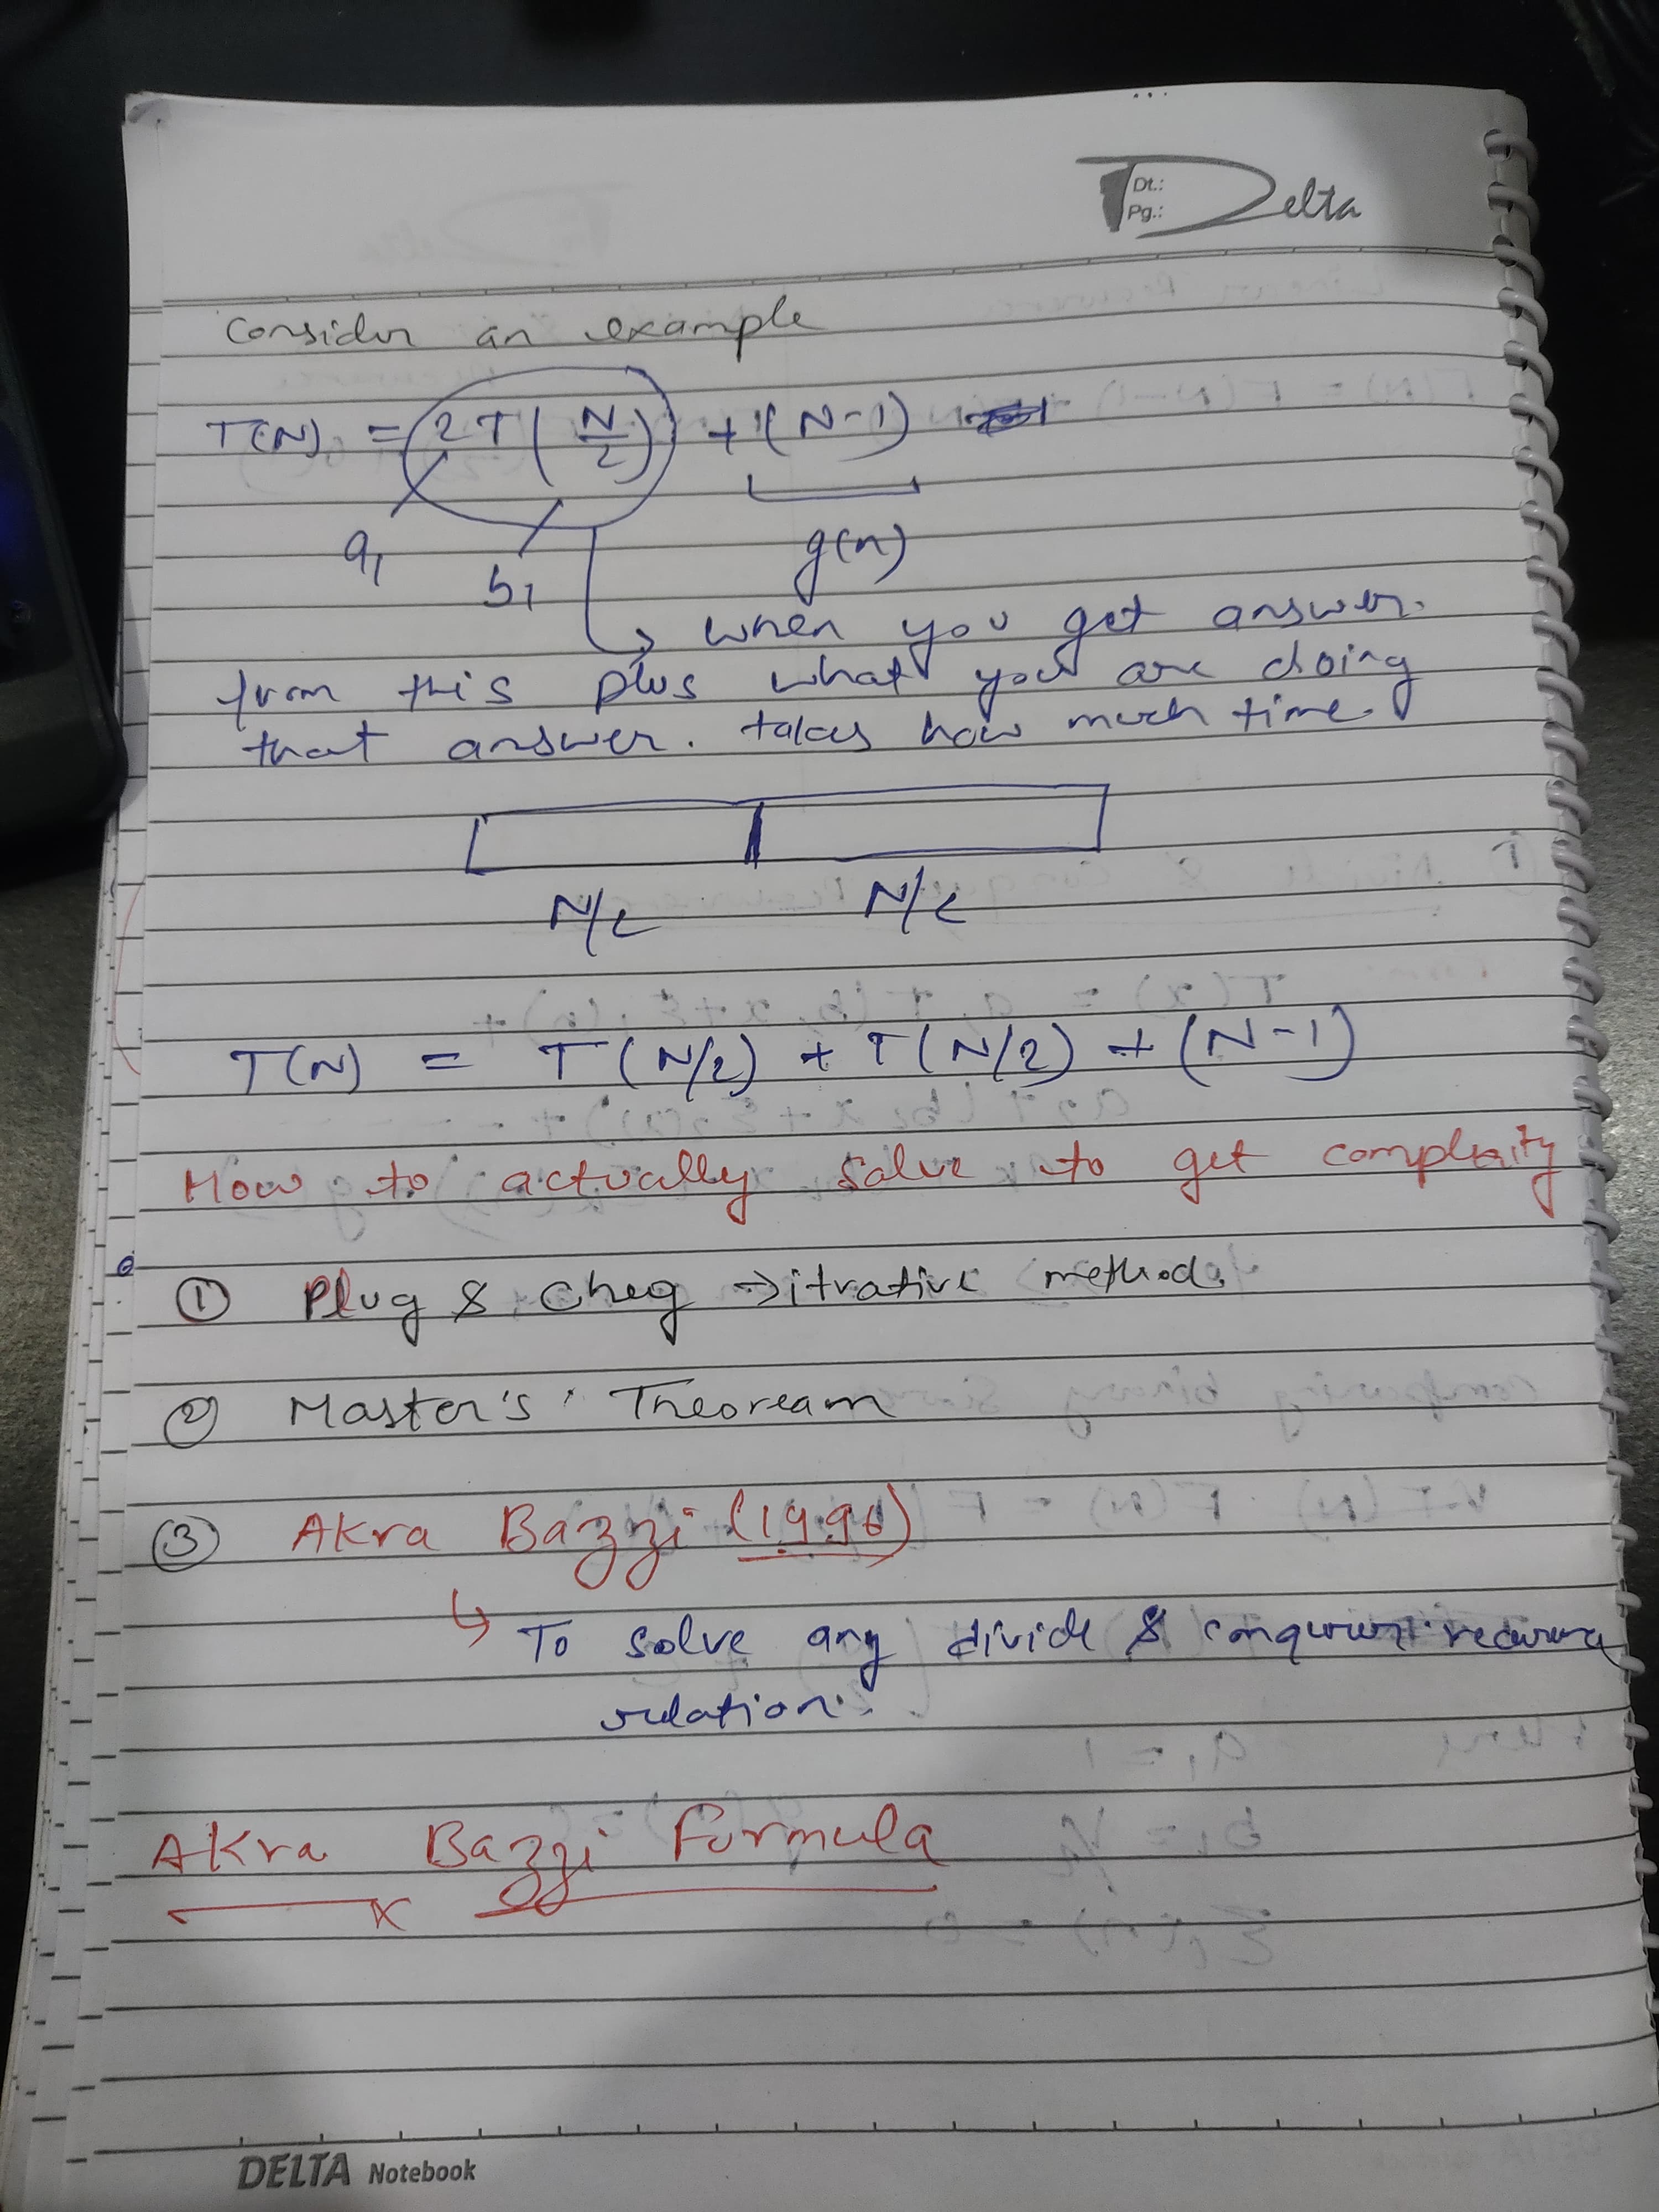 Dt.:
Pg.:
Delta
Consider an example
T(N) = 2T(N/2) + (N-1)
a1
b1
g(n)
when you get answer.
from this plus what you are doing
that answer. takes how much time.
N/2 N/2
T(N) = T(N/2) + T(N/2) + (N-1)
How to actually solve to get complexity
① Plug & Cheg → itrative method.
② Master's Theoream
③ Akra Bazzi (1996)
↳ To solve any divide & conquer
relation.
Akra Bazzi Formula
DELTA Notebook